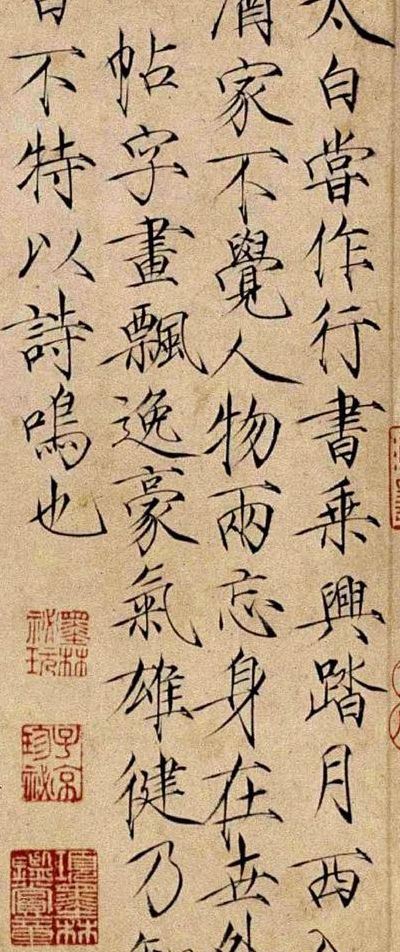 太白嘗作行書乘興踏月西入
酒家不覺人物兩忘身在世外
帖字畫飄逸豪氣雄健乃知
白不特以詩鳴也
墨林祕玩
子京珍祕
項墨林鑑賞章